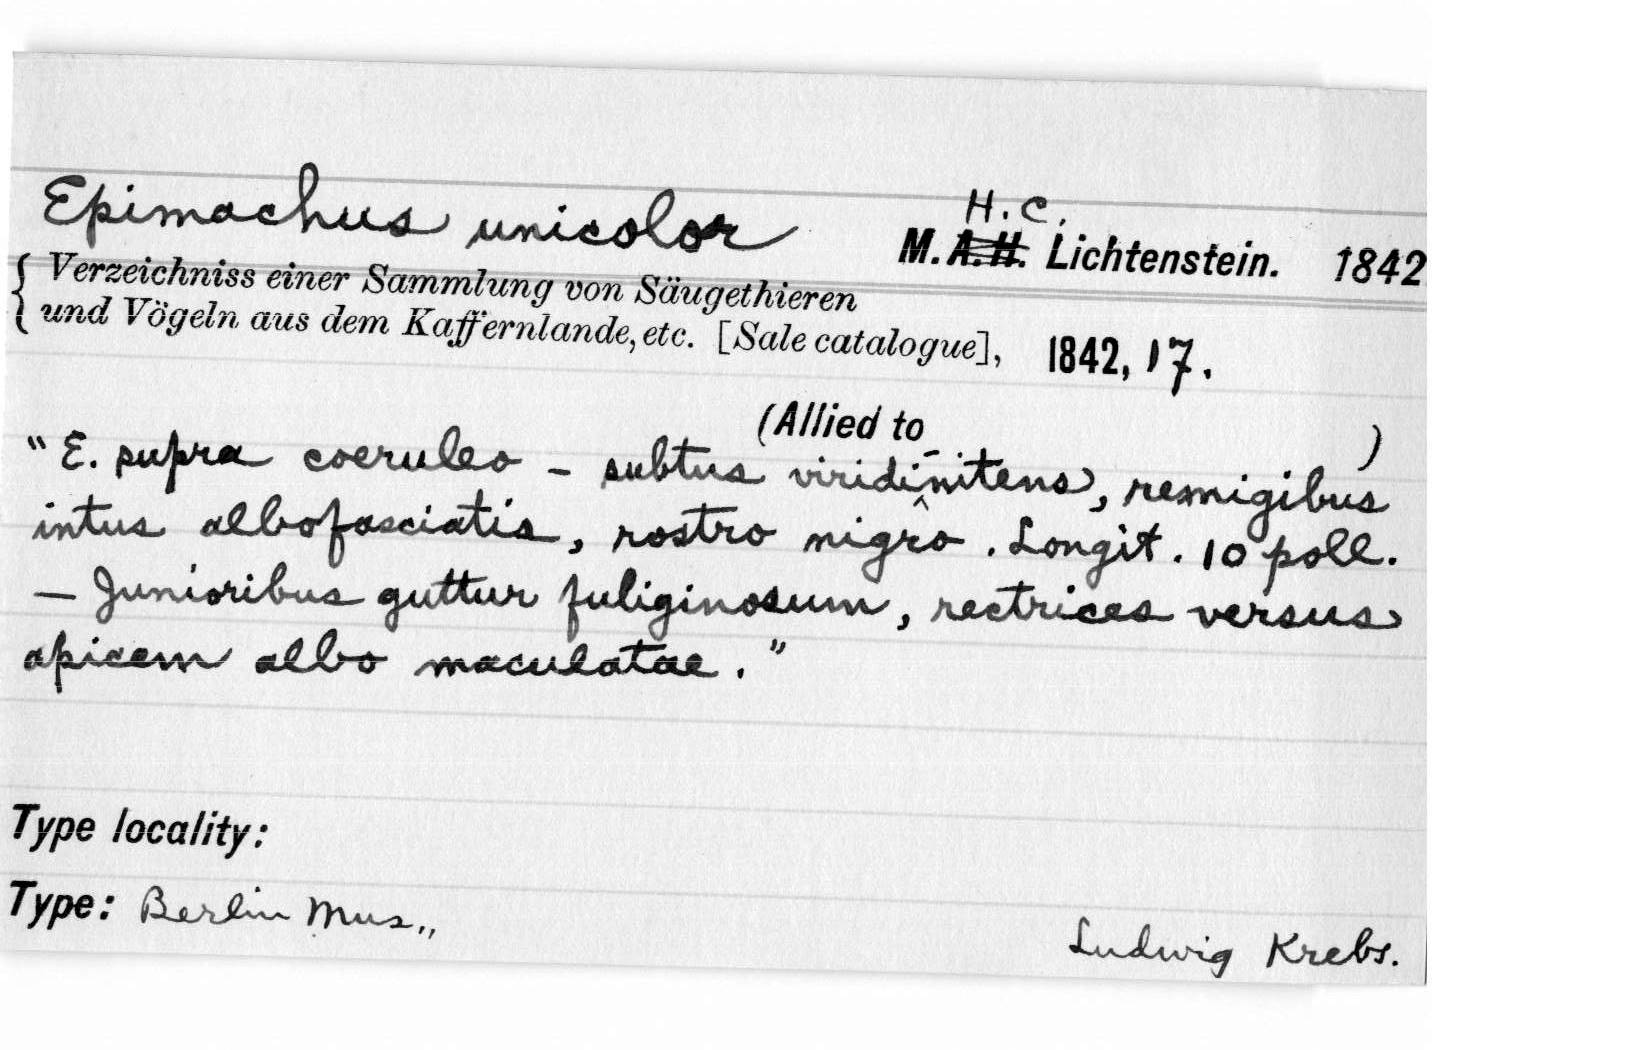 Epimachus unicolor
H. C.
M. A. H. Lichtenstein. 1842
{ Verzeichniss einer Sammlung von Säugethieren
{ und Vögeln aus dem Kaffernlande, etc. [Sale catalogue], 1842, 17.
(Allied to )
"E. supra coeruleo - subtus viridi-nitens, remigibus
intus albofasciatis, rostro nigro. Longit. 10 poll.
— Junioribus guttur fuliginosum, rectrices versus
apicem albo maculatae."
Type locality:
Type: Berlin Mus.,,
Ludwig Krebs.